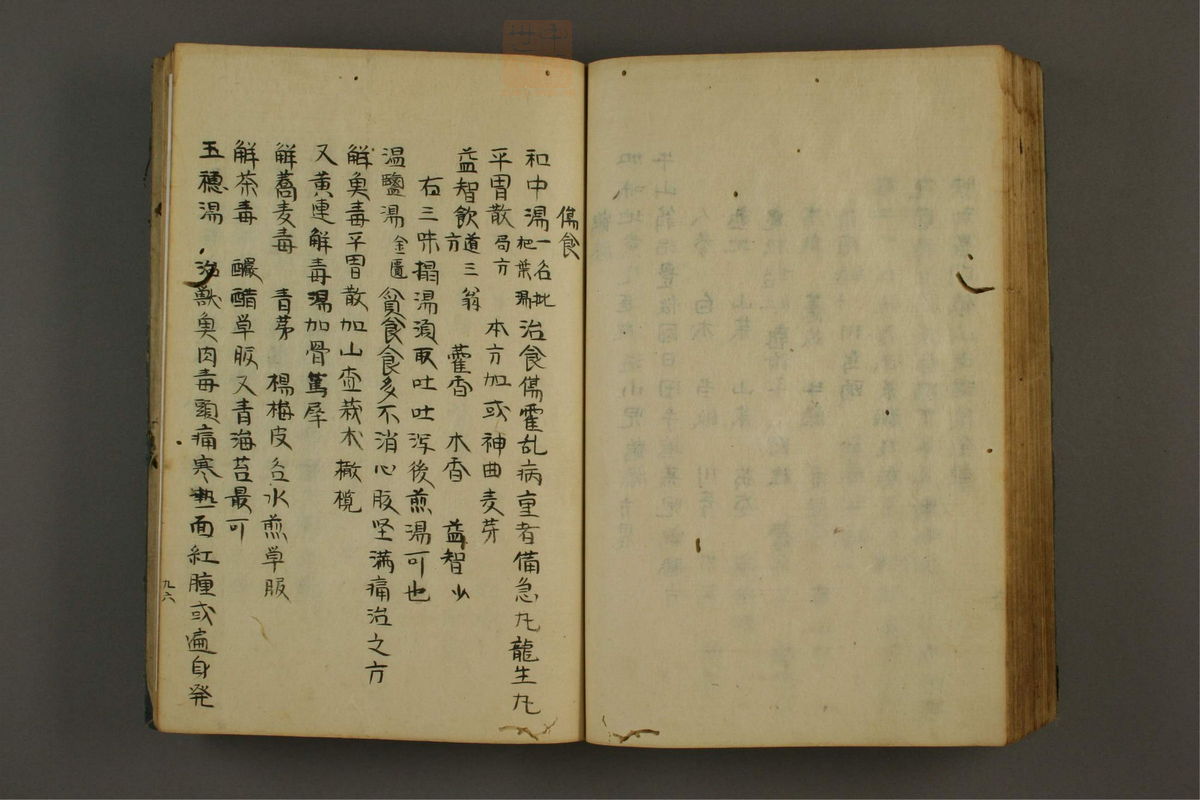 傷食
和中湯 一名枇杷葉湯 治食傷霍乱病重者備急丸龍生丸
平胃散 局方 本方加或神曲麦芽
益智飲 道三翁方 藿香 木香 益智少
右三味搨湯須取吐吐瀉後煎湯可也
温鹽湯 金匱 貧食食多不消心腹坚満痛治之方
解魚毒平胃散加山査莪朮橄欖
又黄連解毒湯加骨篤犀
解蕎麦毒 青茅 楊梅皮 各水煎草服
解茶毒 醲醋草服又青海苔最可
五穂湯 治獣魚肉毒頭痛寒熱面紅腫或遍身発
九六